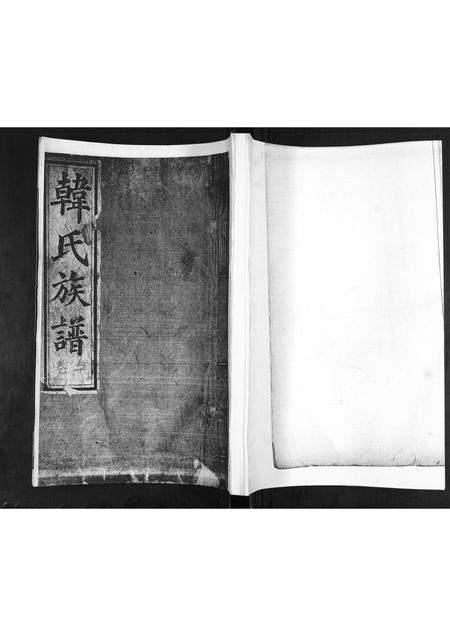 韓氏族譜
卷二